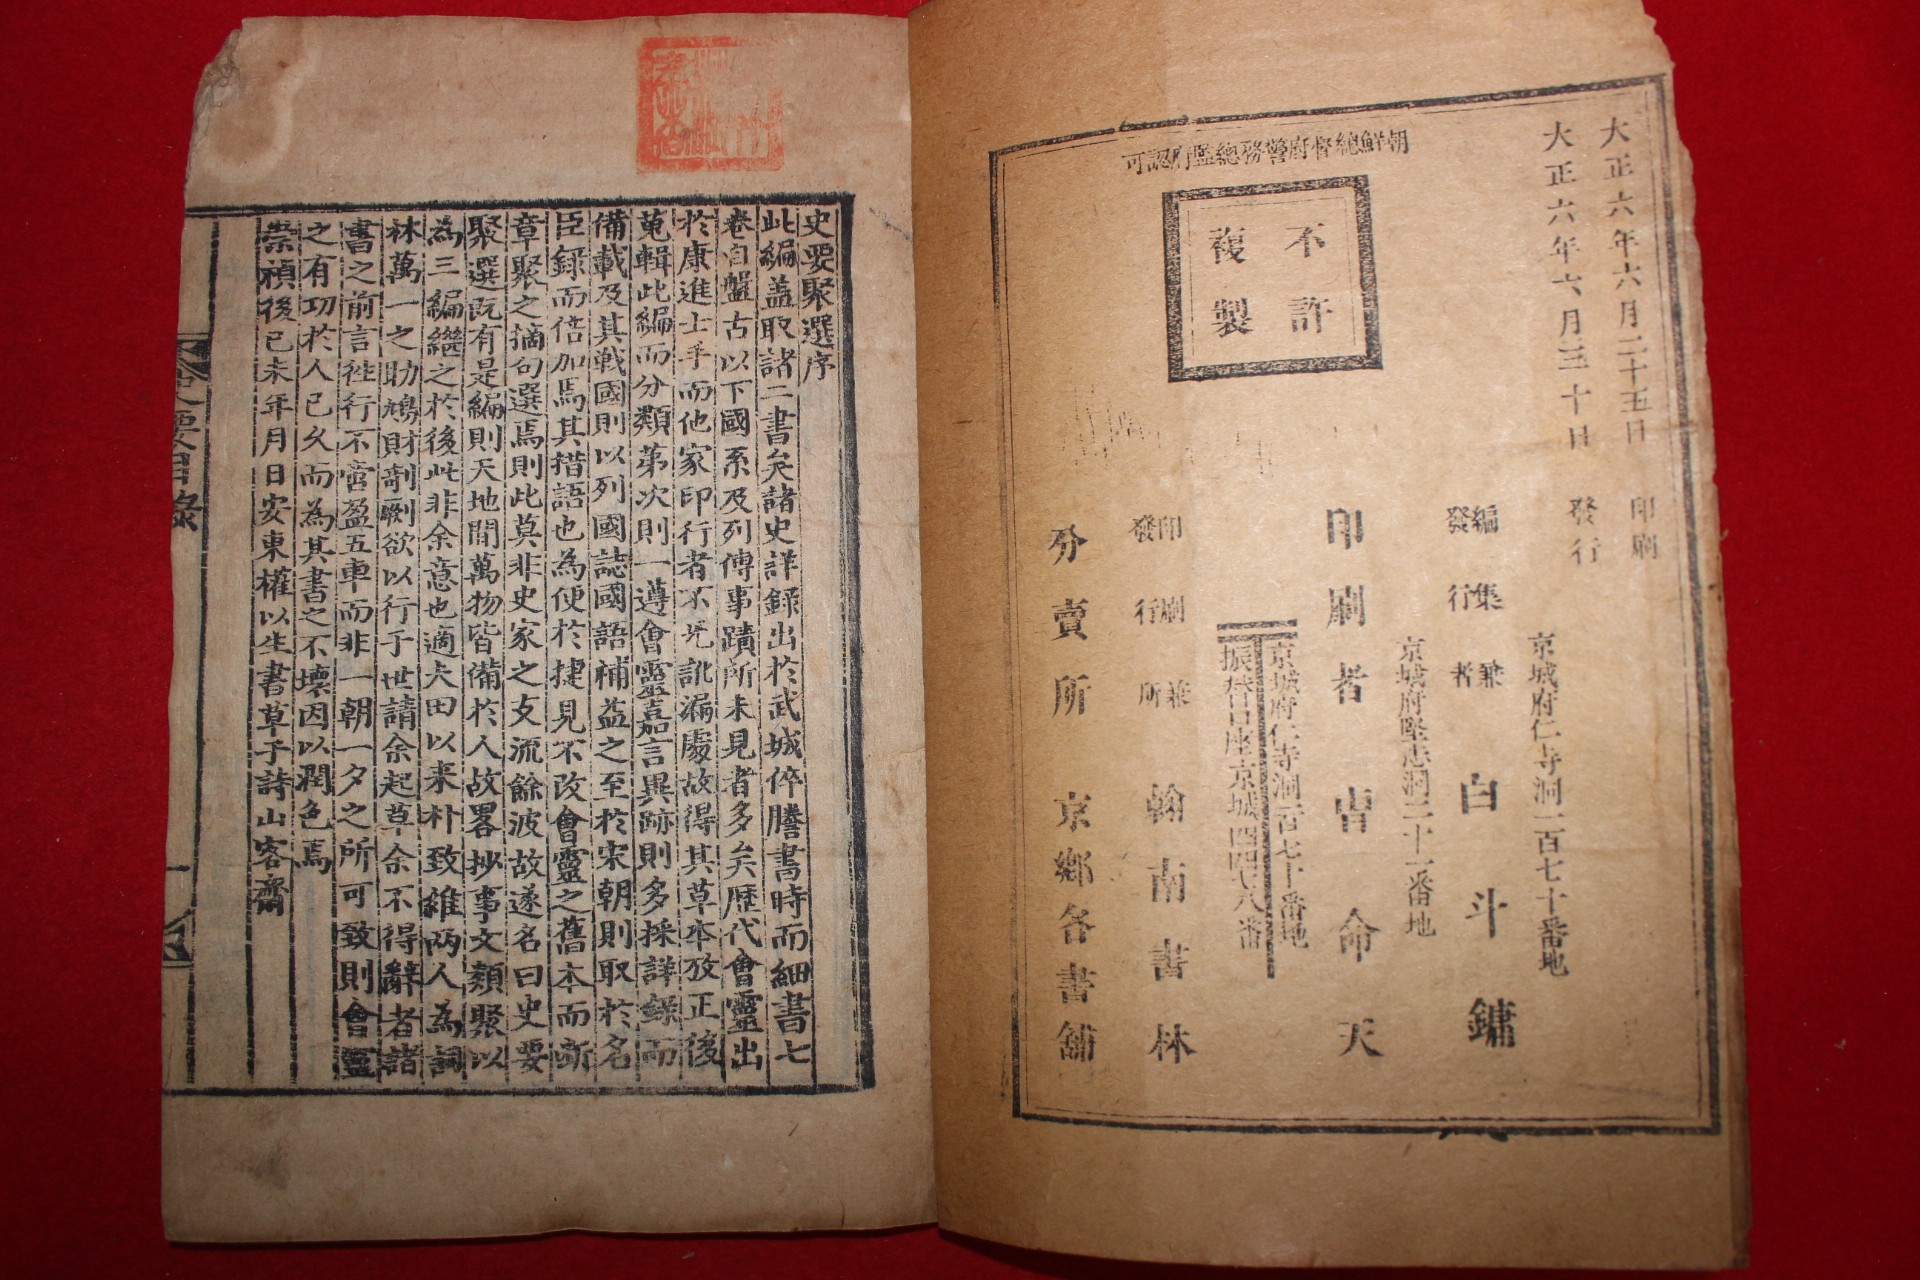 大正六年六月二十五日 印刷
大正六年六月三十日 發行
朝鮮總督府警務總監府認可
不許
複製
京城府仁寺洞一百七十番地
編集兼
發行者 白斗鏞
京城府堅志洞三十二番地
印刷者 曺命天
京城府仁寺洞一百七十番地
印刷兼
發行所 翰南書林
振替口座京城四四八番
分賣所 京鄉各書舖
史要聚選序
此編盖取諸二書矣諸史詳錄出於武城倅謄書時而細書七
卷自盤古以下國系及列傳事蹟所未見者多矣歷代會靈出
於康進士手而他家印行者不免訛漏處故得其草本攷正後
蒐輯此編而分類第次則一遵會靈嘉言異跡則多採詳錄而
備載及其戰國則以列國誌國語補益之至於宋朝則取於名
臣錄而倍加焉其措語也為便於捷見不改會靈之舊本而斷
章聚之摘句選焉則此莫非史家之支流餘波故遂名曰史要
聚選旣有是編則天地間萬物皆備於人故畧抄事文類聚以
為三編繼之於後此非余意也適夫田以朱朴致維兩人為詞
林萬一之助鳩財剞劂欲以行于世請余起草余不得辭者諸
書之前言徃行不啻盈五車而非一朝一夕之所可致則會靈
之有功於人已久而為其書之不壞因以潤色焉
崇禎後己未年月日安東權以生書草于詩山客齋
史要目錄 一